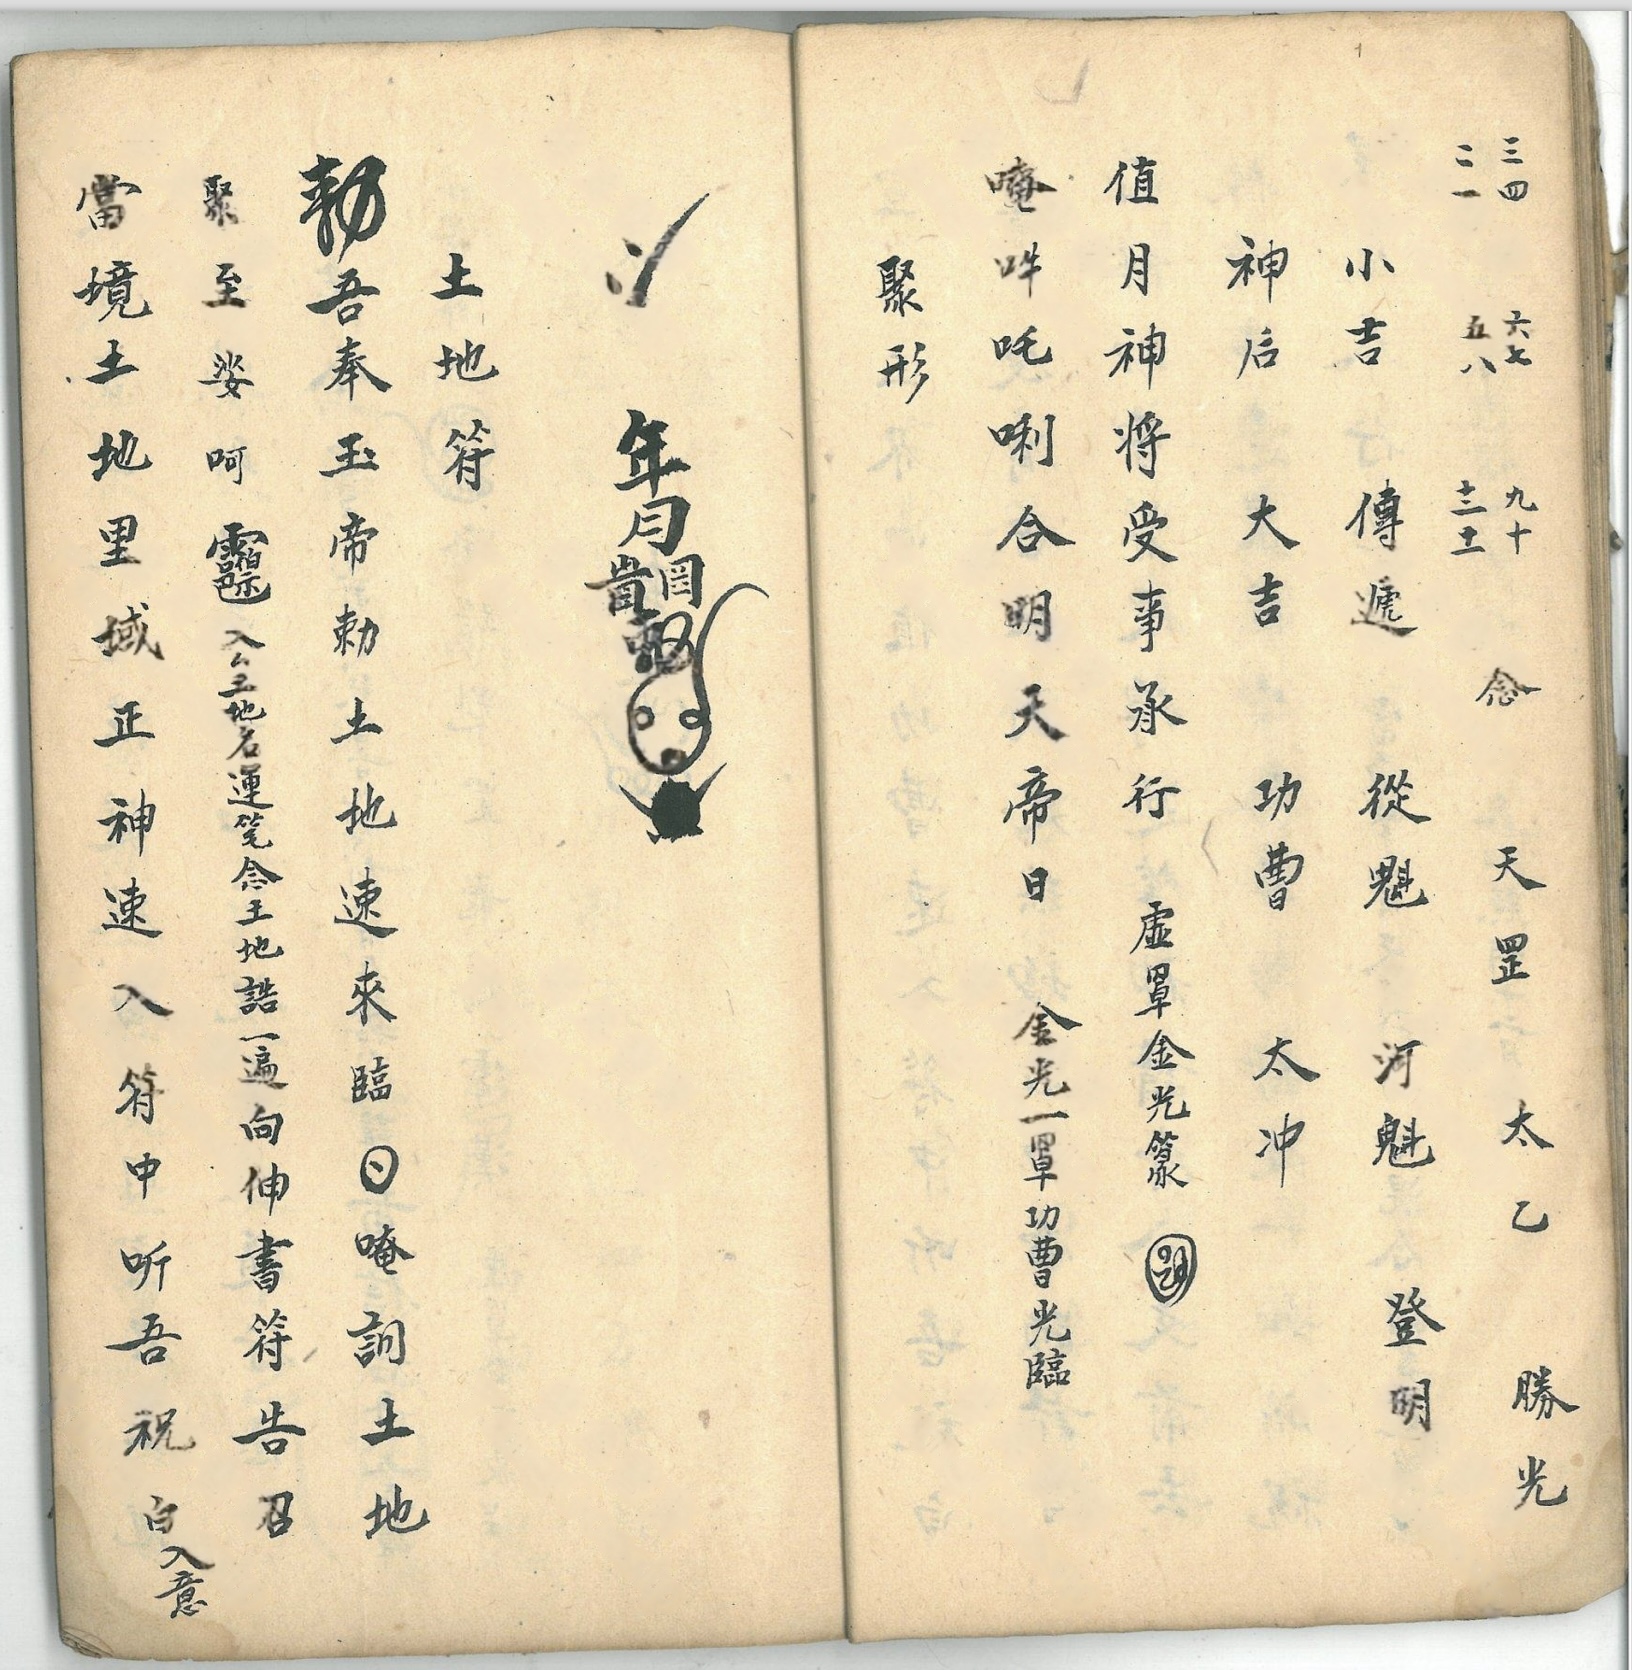 三四 六七 九十 念 天罡 太乙 勝光
二一 五八 十二十一
小吉 傳遞 從魁 河魁 登明
神后 大吉 功曹 太冲
值月神將受事承行 虛罩金光篆
唵吽吒唎合明天帝日 金光一罩功曹光臨
聚形
年月
土地符
勅吾奉玉帝勅土地速來臨唵訶土地
聚至娑呵靈入厶土地名運笔念土地誥一遍向伸書符告召
當境土地里域正神速入符中听吾祝白入意